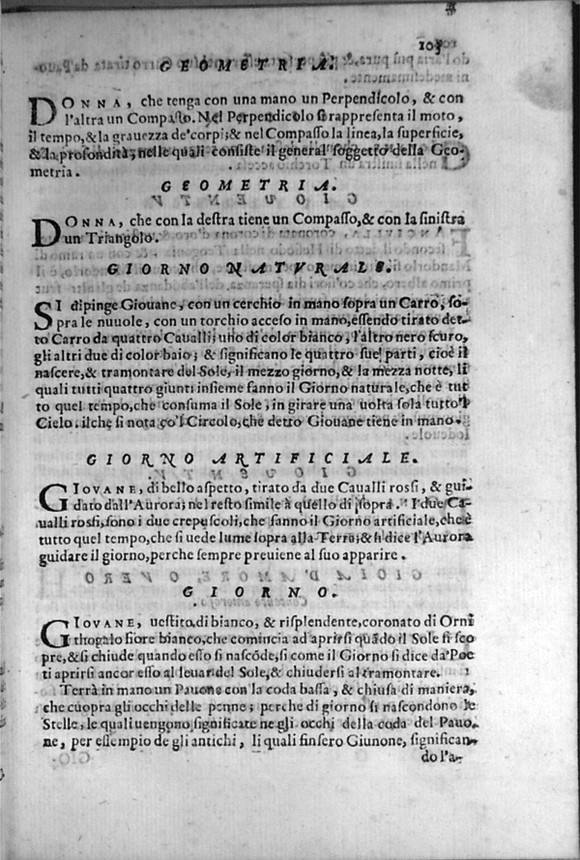 103
GEOMETRIA.
DONNA, che tenga con una mano un Perpendicolo, & con
l'altra un Compasso. Nel Perpendicolo si rappresenta il moto,
il tempo, & la grauezza de' corpi; & nel Compasso la linea, la superficie,
& la profondità, nelle quali consiste il general soggetto della Geo-
metria.
GEOMETRIA.
DONNA, che con la destra tiene un Compasso, & con la sinistra
un Triangolo.
GIORNO NATVRALE.
SI dipinge Giouane, con un cerchio in mano sopra un Carro, so-
pra le nuuole, con un torchio acceso in mano, essendo tirato det-
to Carro da quattro Caualli; uno di color bianco, l'altro nero scuro,
gli altri due di color baio; & significano le quattro sue parti, cioè il
nascere, & tramontare del Sole, il mezzo giorno, & la mezza notte, li
quali tutti quattro giunti insieme fanno il Giorno naturale, che è tut
to quel tempo, che consuma il Sole, in girare una uolta sola tutto'l
Cielo. ilche si nota co'l Circolo, che detto Giouane tiene in mano.
GIORNO ARTIFICIALE.
GIOVANE, di bello aspetto, tirato da due Caualli rossi, & gui-
dato dall'Aurora; nel resto simile à quello di sopra. I due Ca-
ualli rossi, sono i due crepuscoli, che fanno il Giorno artificiale, che è
tutto quel tempo, che si uede lume sopra alla Terra; & si dice l'Aurora
guidare il giorno, perche sempre preuiene al suo apparire.
GIORNO.
GIOVANE, uestito di bianco, & risplendente, coronato di Orni
thogalo fiore bianco, che comincia ad aprirsi quãdo il Sole si sco
pre, & si chiude quando esso si nascõde, si come il Giorno si dice da' Poe
ti aprirsi ancor esso al leuar del Sole, & chiudersi al tramontare.
Terrà in mano un Pauone con la coda bassa, & chiusa di maniera,
che cuopra gli occhi delle penne; perche di giorno si nascondono le
Stelle, le quali uengono significate ne gli occhi della coda del Pauo-
ne, per essempio de gli antichi, li quali finsero Giunone, significan-
do l'a-